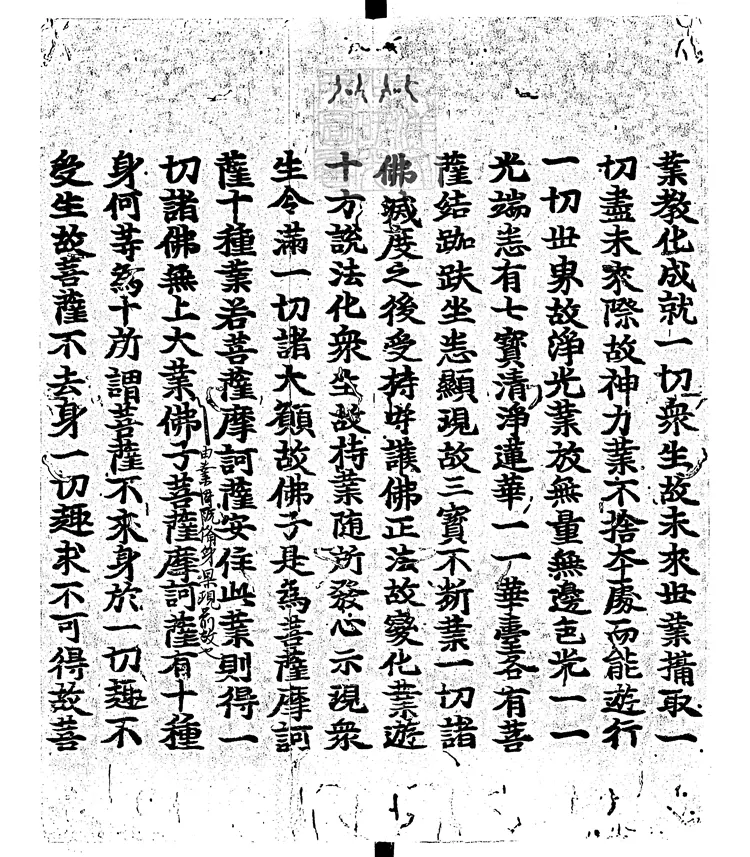 業教化成就一切衆生故未來世業攝取一
切盡未來際故神力業不捨本處而能遊行
一切世界故淨光業放無量無邊色光一一
光端悉有七寶清淨蓮華一一華臺各有菩
薩結跏趺坐悉顯現故三寶不斷業一切諸
佛滅度之後受持守護佛正法故變化業遊
十方說法化衆生故持業随所發心示現衆
生令滿一切諸大願故佛子是為菩薩摩訶
薩十種業若菩薩摩訶薩安住此業則得一
由業身果現前故也
切諸佛無上大業佛子菩薩摩訶薩有十種
身何等為十所謂菩薩不來身於一切趣不
受生故菩薩不去身一切趣求不可得故菩